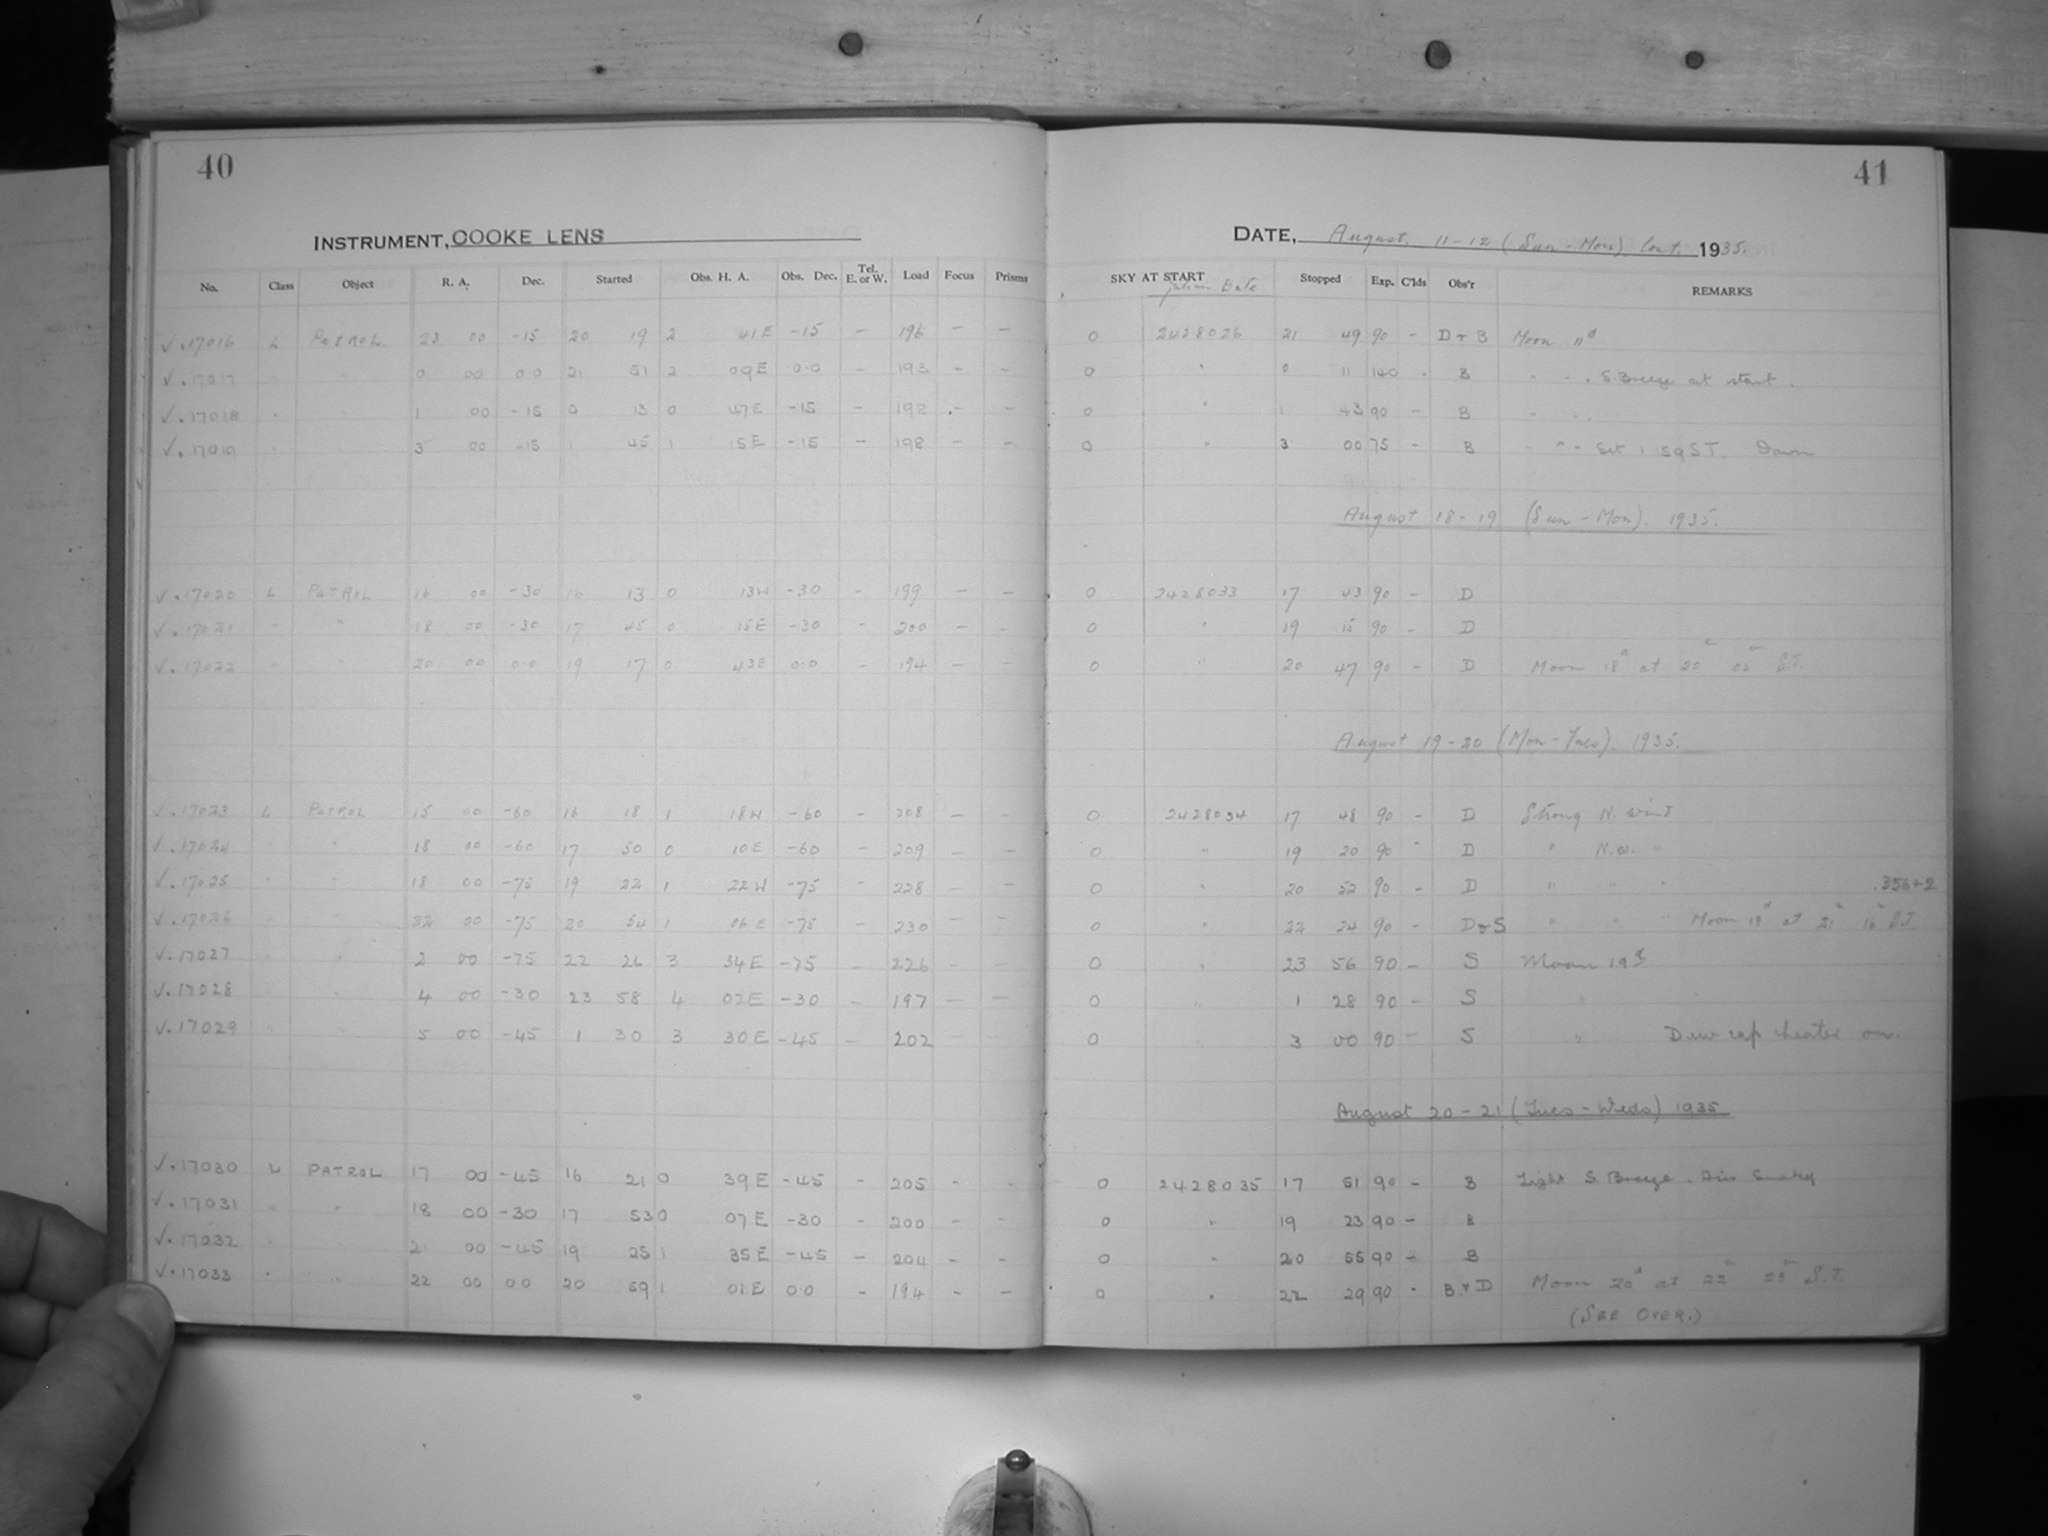 40
41
INSTRUMENT, COOKE LENS
DATE, August 11-12 (Sun-Mon) Cont. 1935.
No. Class Object R. A. Dec. Started Obs. H. A. Obs. Dec. Tel. E. or W. Load Focus Prisms SKY AT START Julian Date Stopped Exp. C'lds Obs'r REMARKS
√.17016 L PATROL 23 00 -15 20 19 2 41E -15 - 196 - - 0 2428026 21 49 90 - D+B Moon 11d
√.17017 " " 0 00 00 21 51 2 09E 0.0 - 193 - - 0 " 0 11 140 - B " " . S. Breeze at start.
√.17018 " " 1 00 -15 0 13 0 47E -15 - 192 - - 0 " 1 43 90 - B " "
√.17019 " " 3 00 -15 1 45 1 15E -15 - 198 - - 0 " 3 00 75 - B " " - Set 1 59 ST. Dawn
August 18-19 (Sun-Mon). 1935.
√.17020 L PATROL 16 00 -30 16 13 0 13W -30 - 199 - - 0 2428033 17 43 90 - D
√.17021 " " 18 00 -30 17 45 0 15E -30 - 200 - - 0 " 19 15 90 - D
√.17022 " " 20 00 0.0 19 17 0 43E 0.0 - 194 - - 0 " 20 47 90 - D Moon 18d at 20h 02m S.T.
August 19-20 (Mon-Tues). 1935.
√.17023 L PATROL 15 00 -60 16 18 1 18W -60 - 208 - - 0 2428034 17 48 90 - D Strong N. Wind
√.17024 " " 18 00 -60 17 50 0 10E -60 - 209 - - 0 " 19 20 90 - D " N.W. "
√.17025 " " 18 00 -75 19 22 1 22W -75 - 228 - - 0 " 20 52 90 - D " " " .356+2
√.17026 " " 22 00 -75 20 54 1 06E -75 - 230 - - 0 " 22 24 90 - D+S " " " Moon 19d at 21h 16m S.T
√.17027 " " 2 00 -75 22 26 3 34E -75 226 - - 0 " 23 56 90 - S Moon 19d
√.17028 " " 4 00 -30 23 58 4 02E -30 - 197 - - 0 " 1 28 90 - S "
√.17029 " " 5 00 -45 1 30 3 30E -45 - 202 - - 0 " 3 00 90 - S " Dew cap heater on.
August 20-21 (Tues-Weds) 1935
√.17030 L PATROL 17 00 -45 16 21 0 39E -45 - 205 - - 0 2428035 17 51 90 - B Light S. Breeze. Air Smoky
√.17031 " " 18 00 -30 17 53 0 07E -30 - 200 - - 0 " 19 23 90 - B
√.17032 " " 21 00 -45 19 25 1 35E -45 - 204 - - 0 " 20 55 90 - B
√.17033 " " 22 00 00 20 59 1 01E 0.0 - 194 - - 0 " 22 29 90 - B+D Moon 20d at 22h 23m S.T.
(SEE OVER.)